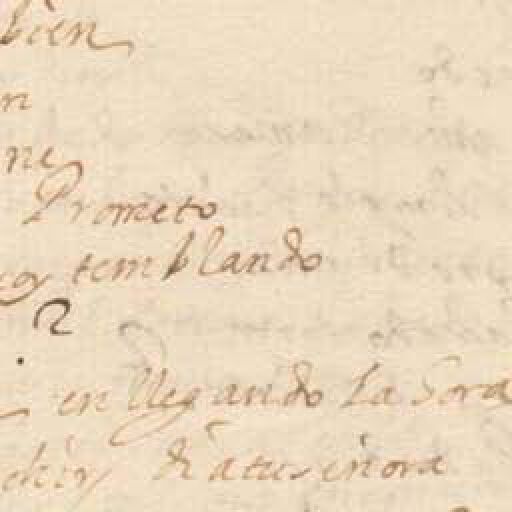 bien
n
ne
Prometo
oy temblando
2
en llegando la sora
dia tusinora